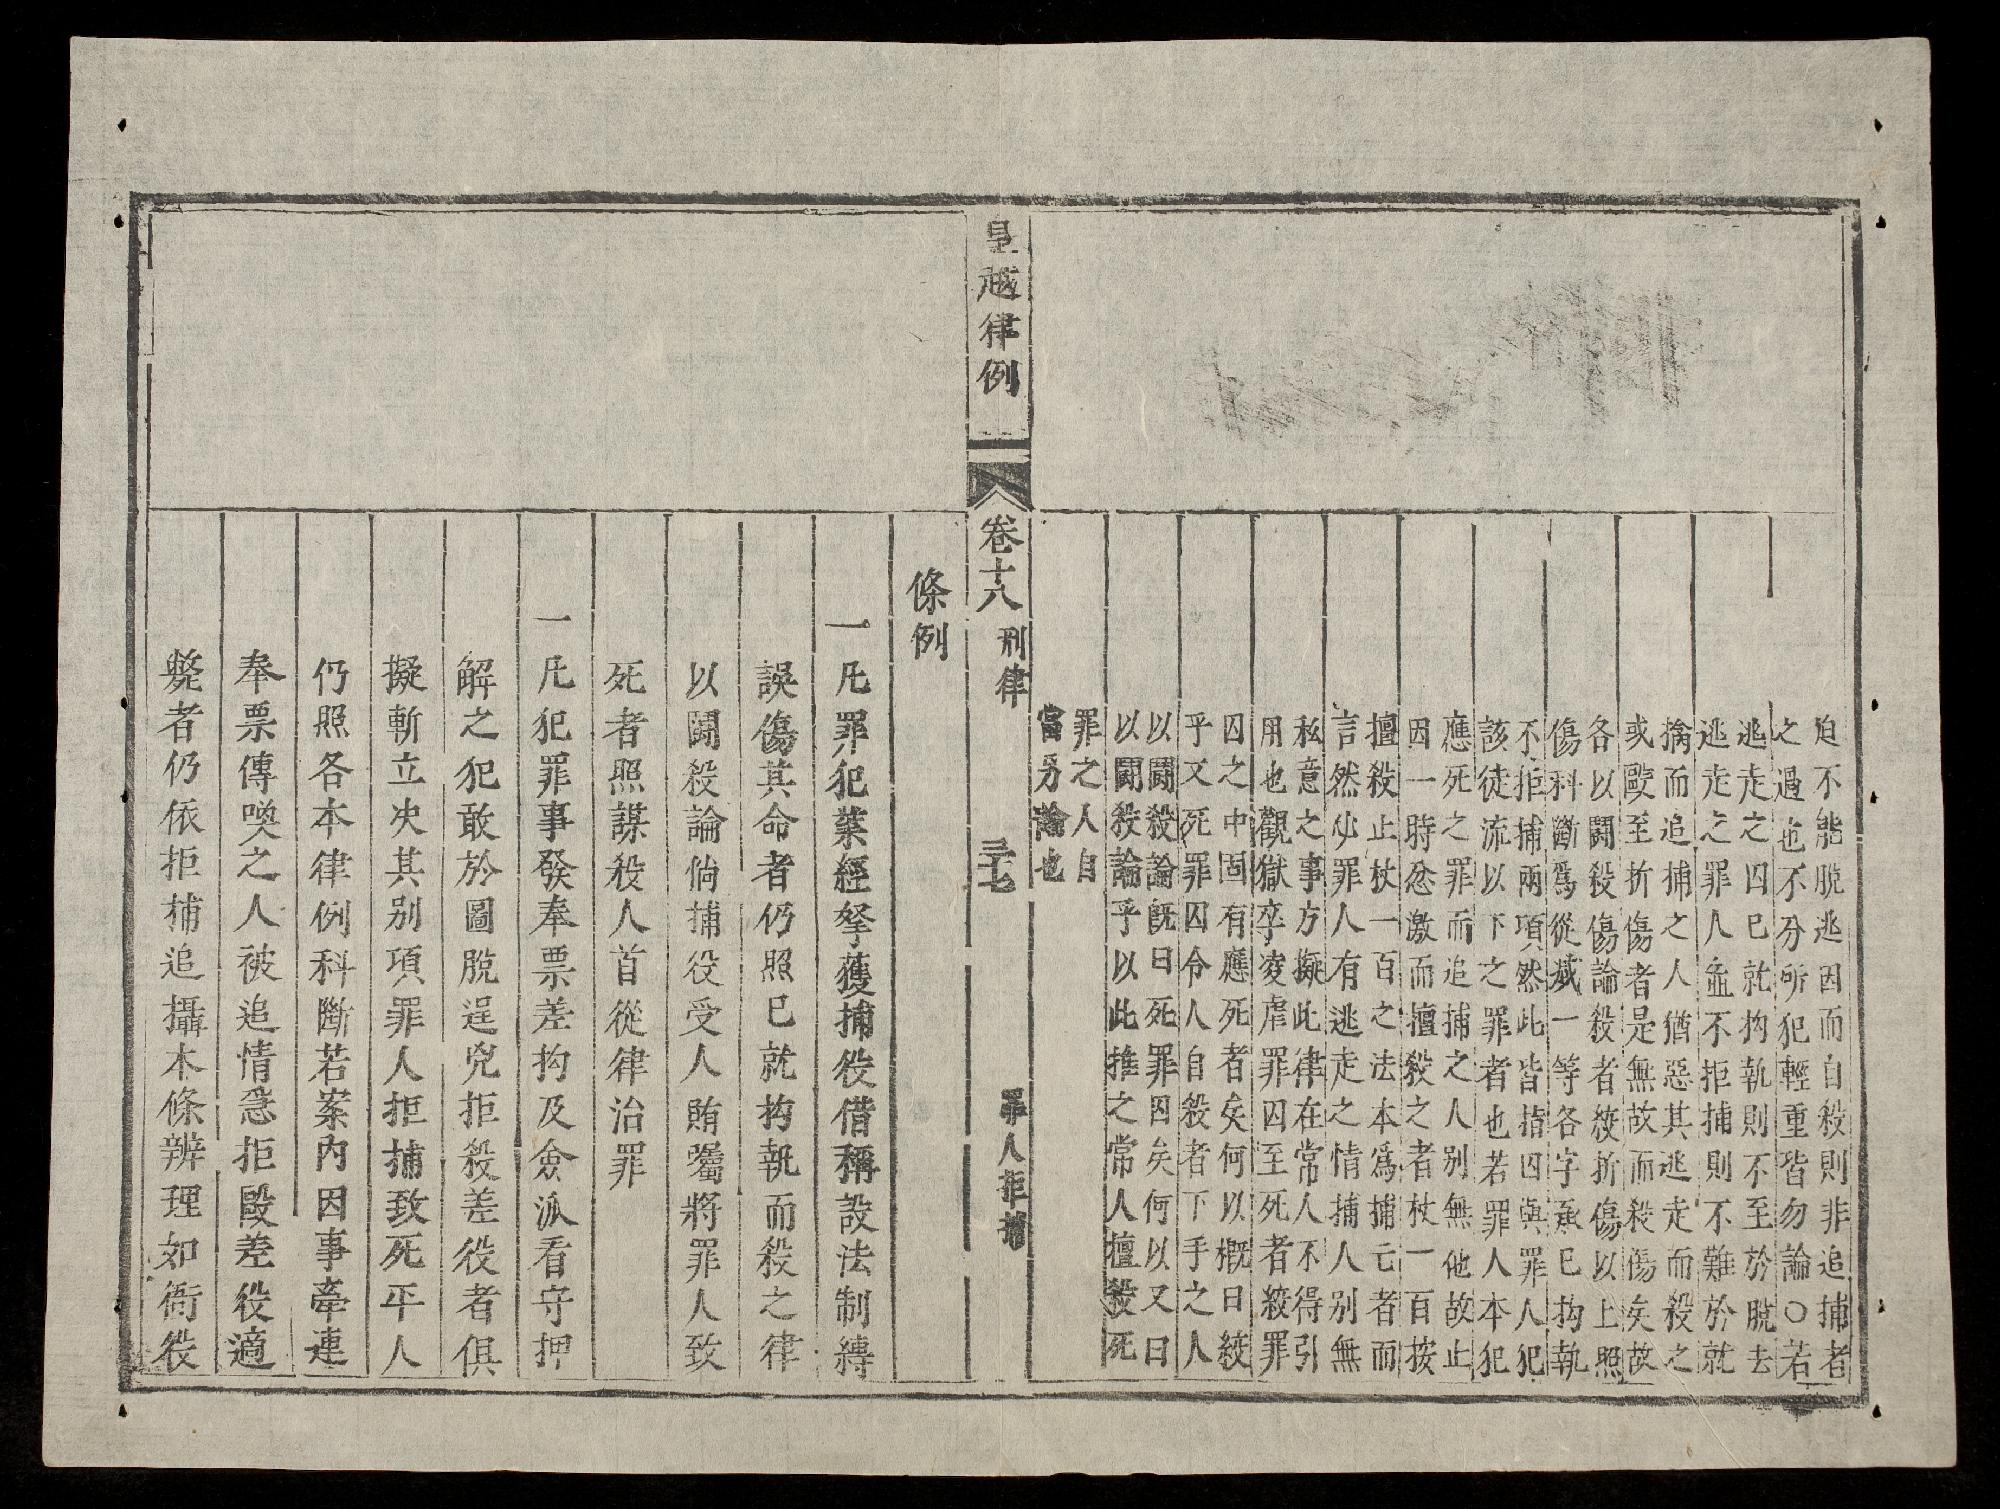 迫不能脫逃因而自殺則非追捕者
之過也不分所犯輕重皆勿論○若
逃走之囚已就拘執則不至於脫去
逃走之罪人並不拒捕則不難於就
擒而追捕之人猶惡其逃走而殺之
或毆至折傷者是無故而殺傷矣故
各以鬭殺傷論殺者絞折傷以上照
傷科斷爲從减一等各字承已拘執
不拒捕兩項然此皆指囚與罪人犯
該徒流以下之罪者也若罪人本犯
應死之罪而追捕之人別無他故止
因一時忿激而擅殺之者杖一百按
擅殺止杖一百之法本爲捕亡者而
言然必罪人有逃走之情捕人別無
私意之事方擬此律在常人不得引
用也觀獄卒凌虐罪囚至死者絞罪
囚之中固有應死者矣何以概曰絞
乎又死罪囚令人自殺者下手之人
以鬭殺論旣曰死罪囚矣何以又曰
以鬭殺論乎以此推之常人擅殺死
罪之人自
當另論也
皇越律例
卷十八 刑律 三十七 罪人拒捕
條例
一凡罪犯業經拏獲捕役借稱設法制縛
誤傷其命者仍照已就拘執而殺之律
以鬭殺論倘捕役受人賄囑將罪人致
死者照謀殺人首從律治罪
一凡犯罪事發奉票差拘及僉派看守押
解之犯敢於圖脫逞兇拒殺差役者俱
擬斬立決其別項罪人拒捕致死平人
仍照各本律例科斷若案內因事牽連
奉票傳喚之人被追情急拒毆差役適
斃者仍依拒捕追攝本條辨理如衙役